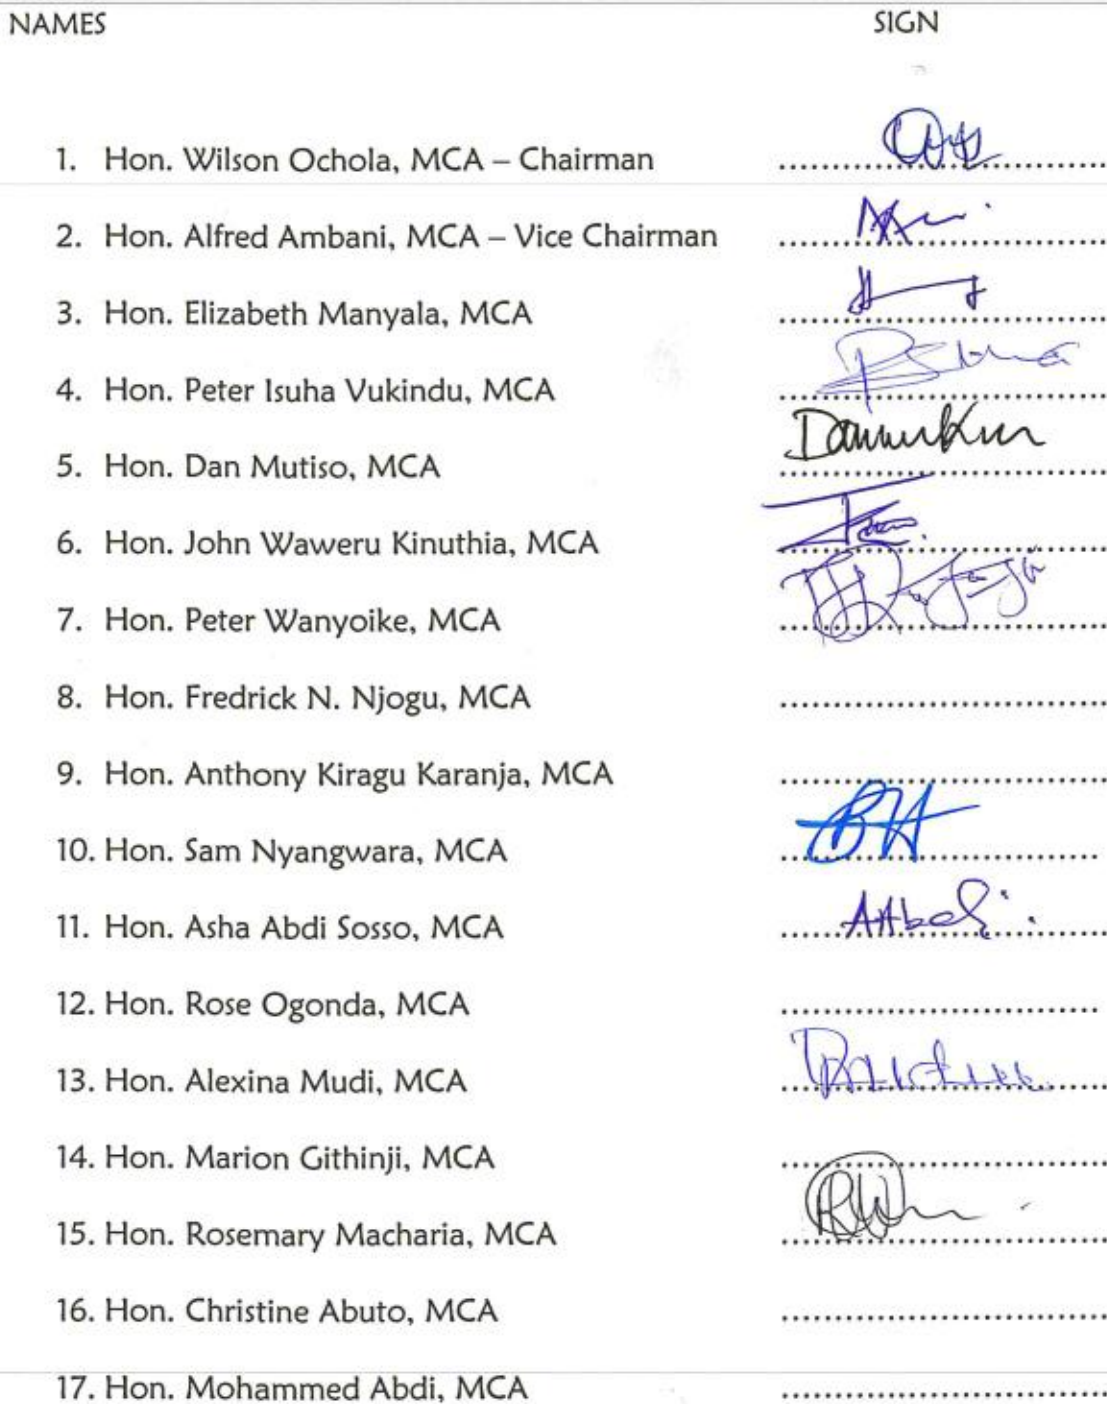 NAMES SIGN
1. Hon. Wilson Ochola, MCA – Chairman ..............................
2. Hon. Alfred Ambani, MCA – Vice Chairman ..............................
3. Hon. Elizabeth Manyala, MCA ..............................
4. Hon. Peter Isuha Vukindu, MCA ..............................
5. Hon. Dan Mutiso, MCA ..............................
6. Hon. John Waweru Kinuthia, MCA ..............................
7. Hon. Peter Wanyoike, MCA ..............................
8. Hon. Fredrick N. Njogu, MCA ..............................
9. Hon. Anthony Kiragu Karanja, MCA ..............................
10. Hon. Sam Nyangwara, MCA ..............................
11. Hon. Asha Abdi Sosso, MCA ..............................
12. Hon. Rose Ogonda, MCA ..............................
13. Hon. Alexina Mudi, MCA ..............................
14. Hon. Marion Githinji, MCA ..............................
15. Hon. Rosemary Macharia, MCA ..............................
16. Hon. Christine Abuto, MCA ..............................
17. Hon. Mohammed Abdi, MCA ..............................